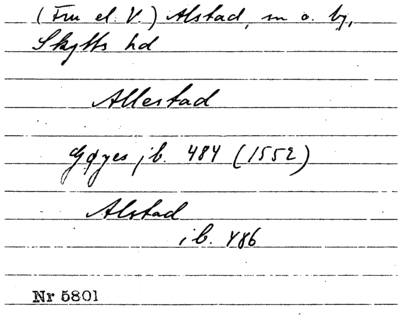 (Fru el. V.) Alstad, sn o. by,
Skytts hd
Allestad
Gøyes jb. 484 (1552)
Alstad
ib. 486
Nr 5801